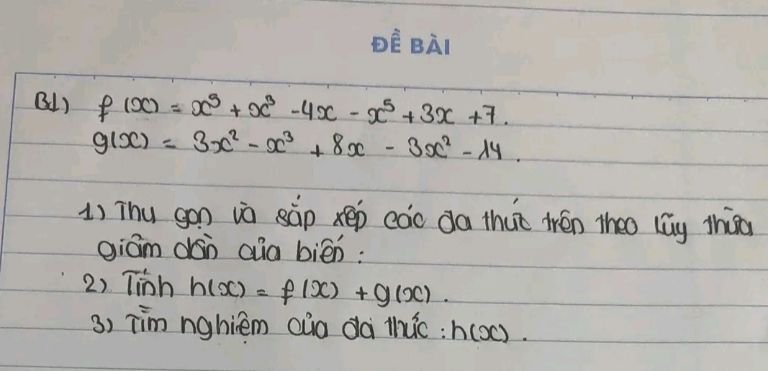 ĐỀ BÀI
B1) f(x) = x⁵ + x³ - 4x - x⁵ + 3x + 7.
g(x) = 3x² - x³ + 8x - 3x² - 14.
1) Thu gọn và sắp xếp các đa thức trên theo lũy thừa
giảm dần của biến:
2) Tính h(x) = f(x) + g(x).
3) Tìm nghiệm của đa thức: h(x).